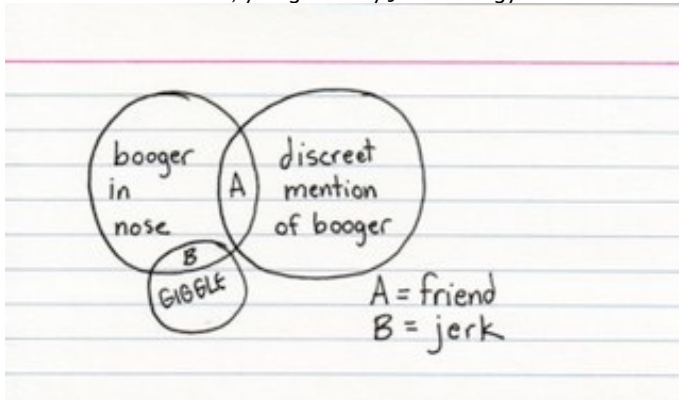 booger
in
nose
A
discreet
mention
of booger
B
GIGGLE
A = friend
B = jerk